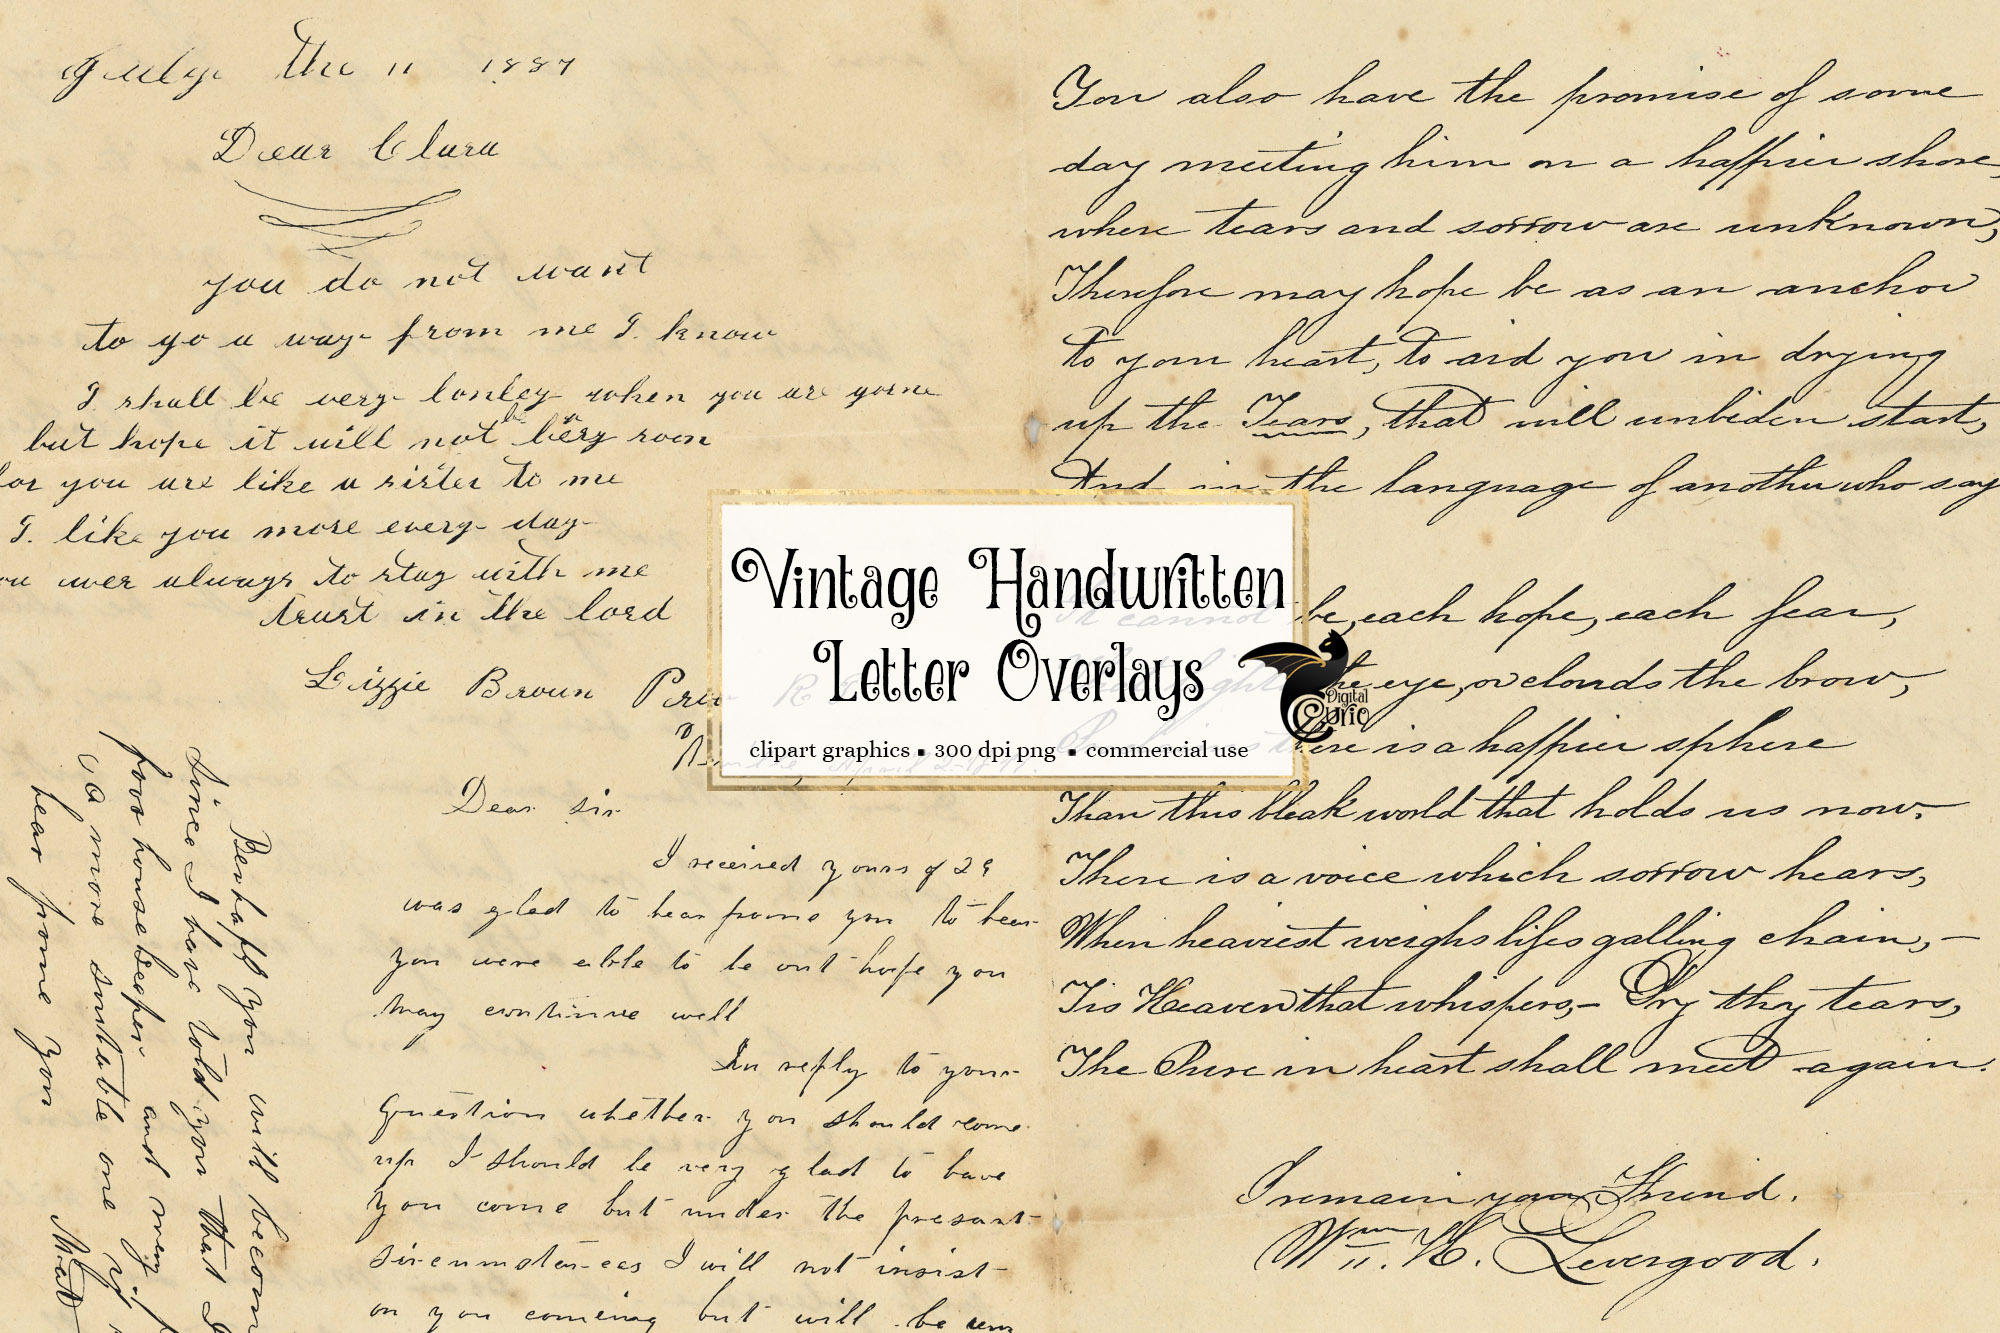 July the 11 1887
Dear Clara
you do not want
to go a way from me I know
I shall be very lonley when you are gorne
but hope it will not be very soon
for you are like a sister to me
I. like you more every day
you wer always to stay with me
trust in the lord
Lizzie Broun
Dear sir
I received yours of 29
was glad to hear frome you to hear
you were able to be out hope you
may continue well
In reply to your
question whether you should come
up I should be very glad to have
you come but under the presant
circumstances I will not insist
on you comeing but will be
Perhaps you will become
since I have told you that I
poor housekeeper and may
a more suitable one if
hear frome you
Vintage Handwritten
Letter Overlays
clipart graphics ▪ 300 dpi png ▪ commercial use
Digital
Curio
You also have the promise of some
day meeting him on a happier shore,
where tears and sorrow are unknown,
Therefore may hope be as an anchor
to your heart, to aid you in drying
up the Tears, that will unbiden start,
And in the language of another who say
It cannot be, each hope, each fear,
the eye, or clouds the brow,
there is a happier sphere
Than this bleak world that holds us now.
There is a voice which sorrow hears,
When heaviest weighs lifes galling chain,—
Tis Heaven that whispers,— Dry thy tears,
The Pure in heart shall meet again.
I remain your Friend.
Wm. H. Livergood.